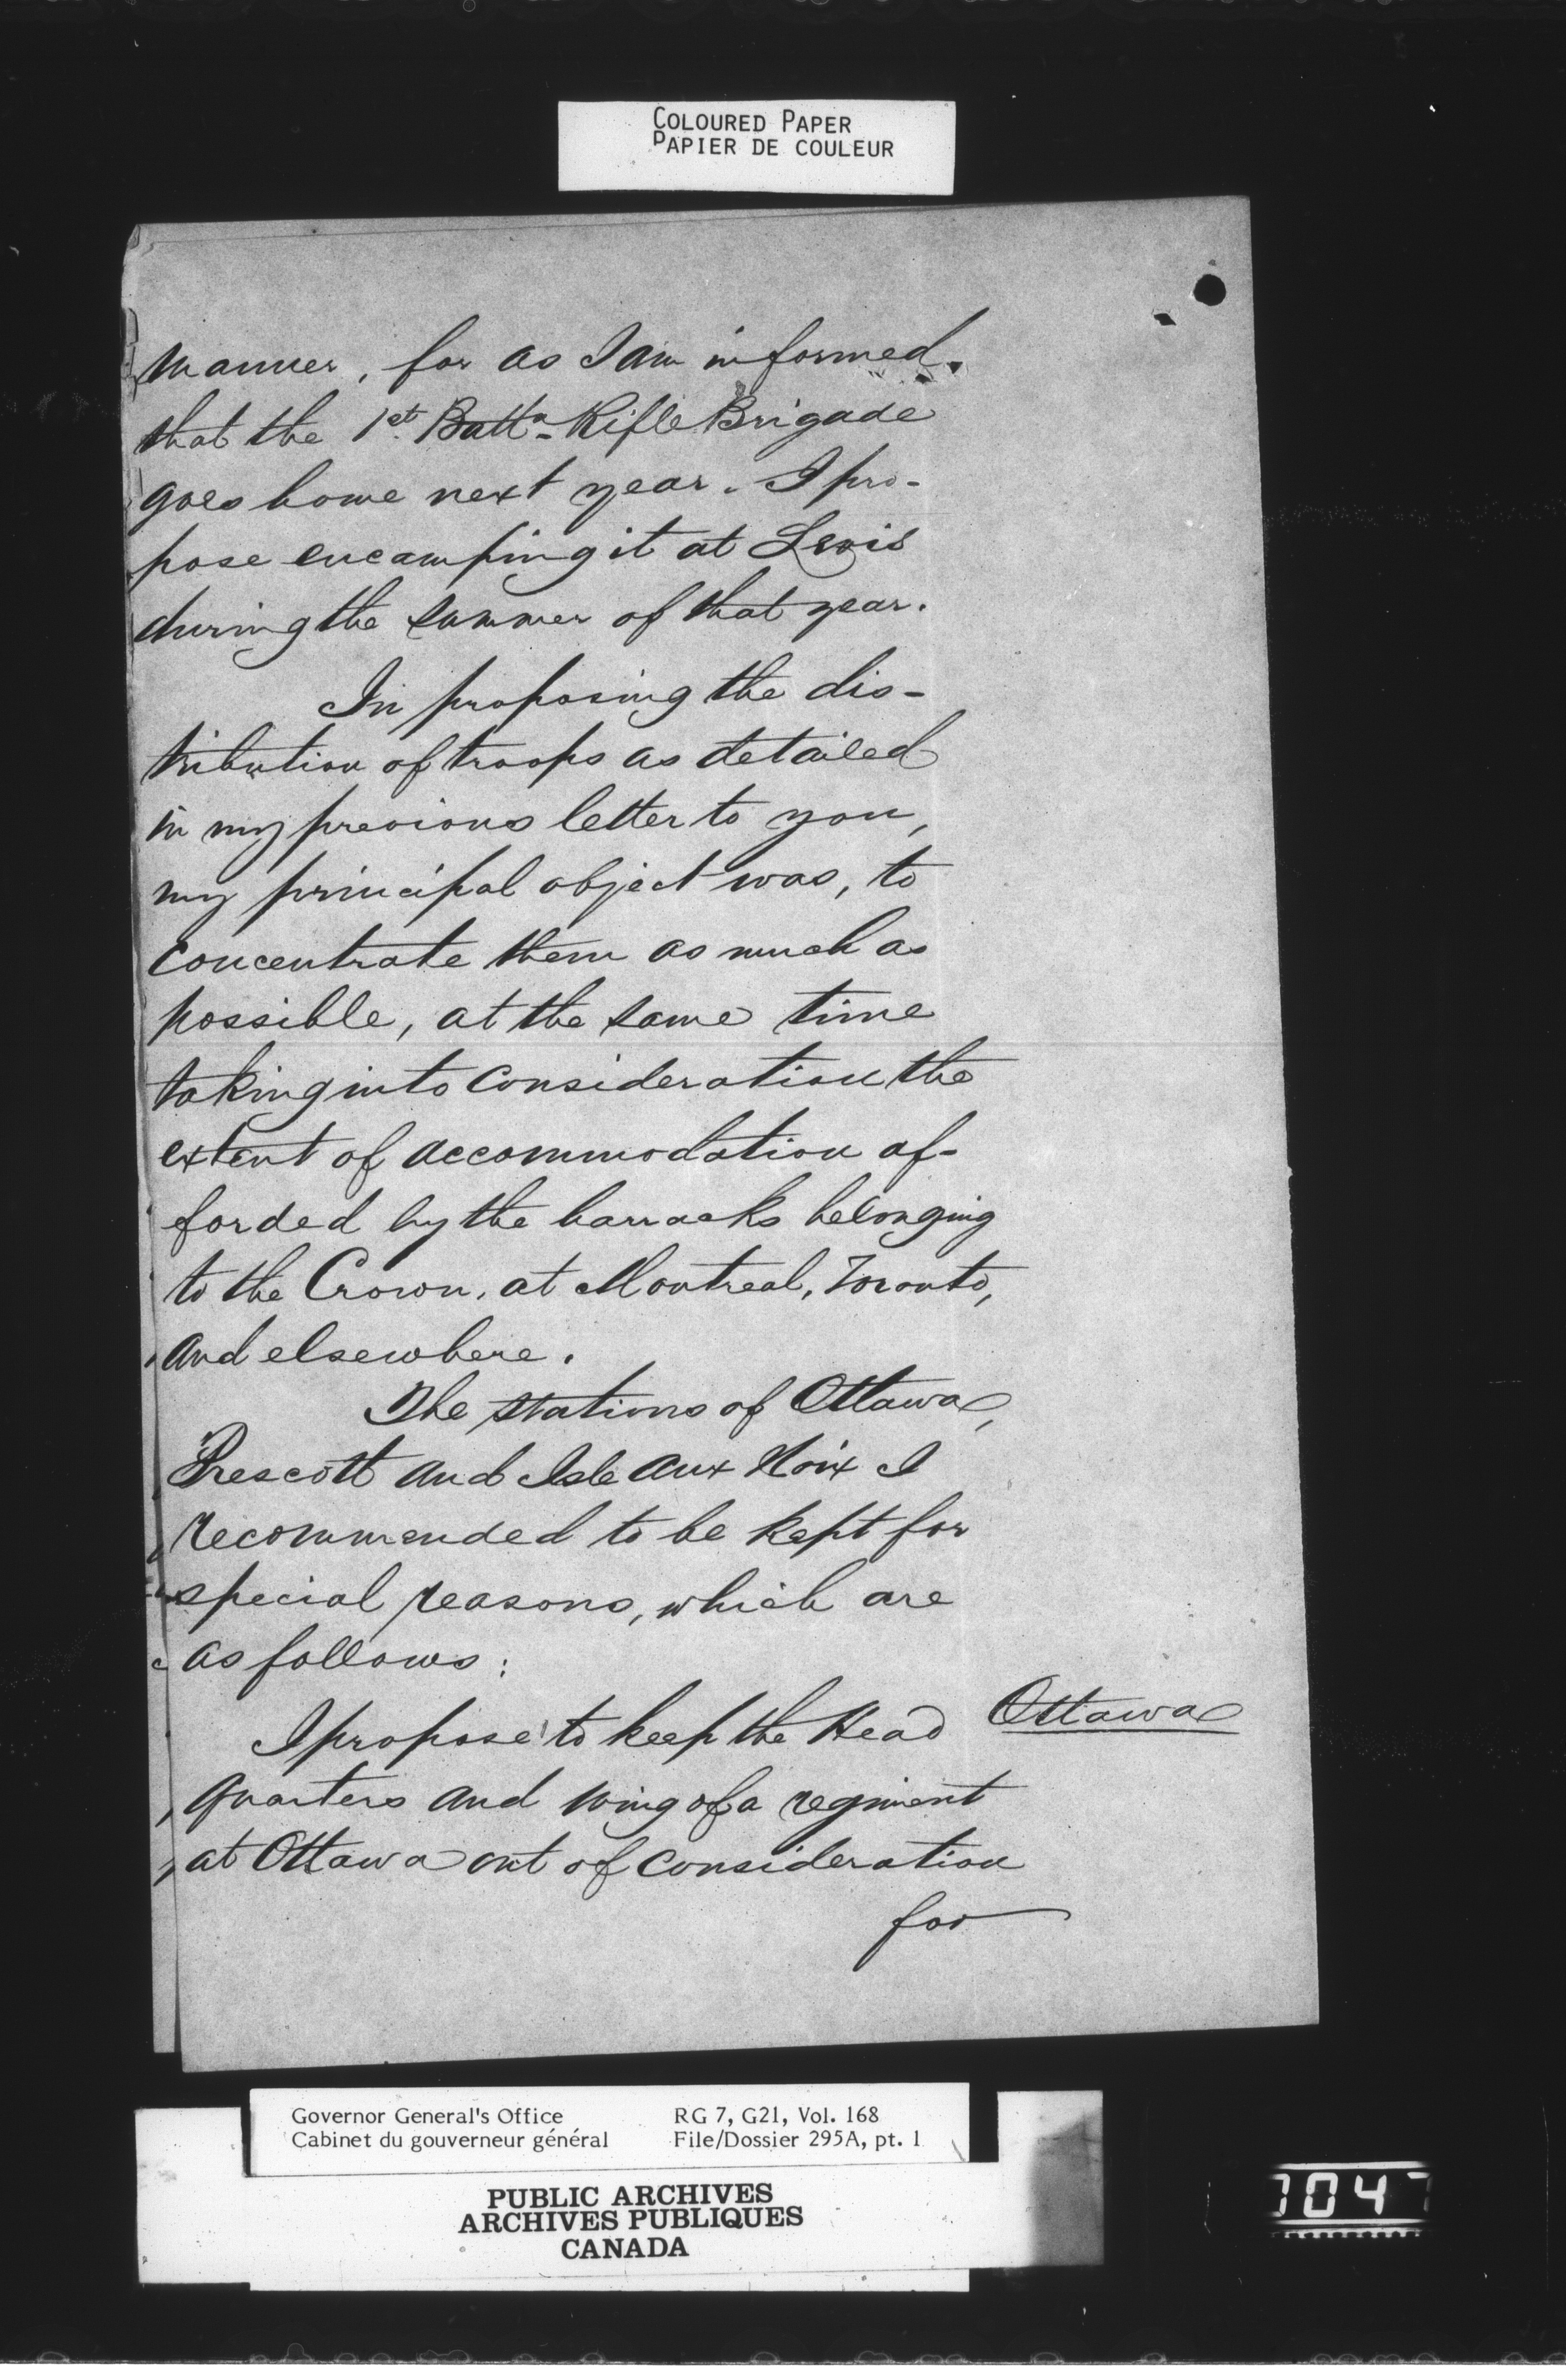 COLOURED PAPER
PAPIER DE COULEUR
manner, for as I am informed.
that the 1st. Battn- Rifle Brigade
goes home next year. I pro-
pose encamping it at Levis
during the summer of that year.
In proposing the dis-
tribution of troops as detailed
in my previous letter to you,
my principal object was, to
concentrate them as much as
possible, at the same time
taking into consideration the
extent of accommodation af-
forded by the barracks belonging
to the Crown, at Montreal, Toronto,
and elsewhere.
The stations of Ottawa,
Prescott and Isle aux Noix I
recommended to be kept for
special reasons, which are
as follows:
I propose to keep the Head
Ottawa
quarters and wing of a regiment
at Ottawa out of consideration
for
Governor General's Office RG 7, G21, Vol. 168
Cabinet du gouverneur général File/Dossier 295A, pt. 1
PUBLIC ARCHIVES
ARCHIVES PUBLIQUES
CANADA